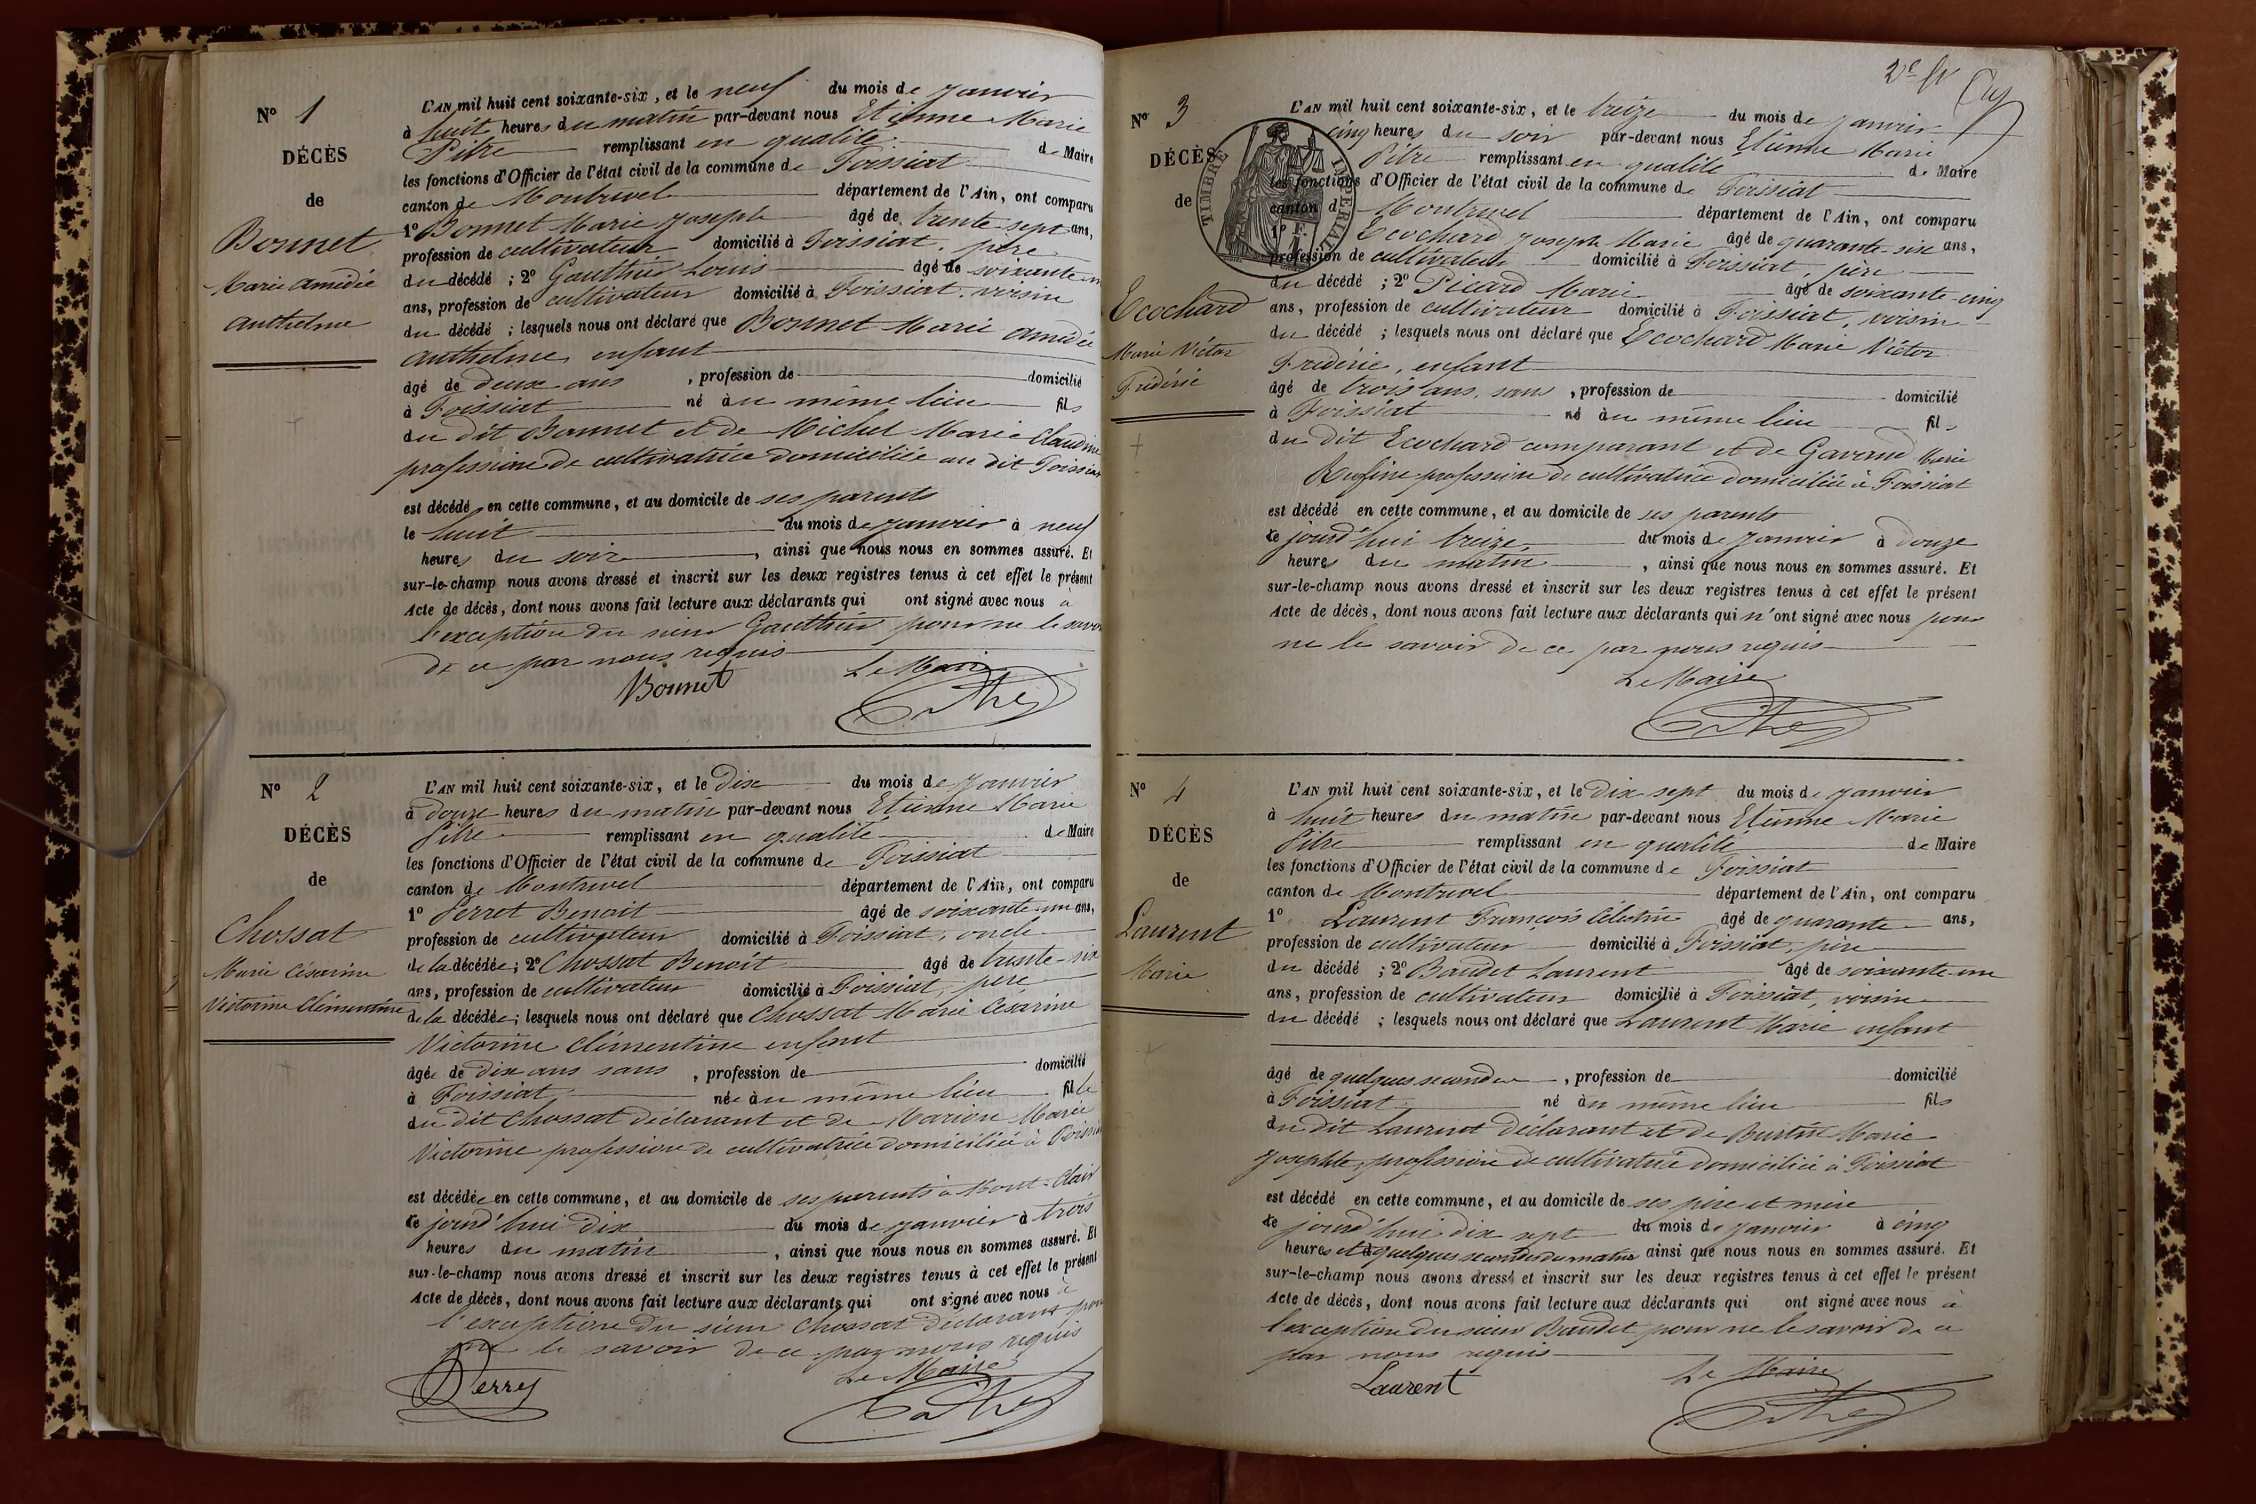 N° 1
DÉCÈS
de
Bonnet
Marie Amédée
Anthelme
L'AN mil huit cent soixante-six, et le neuf du mois de janvier
à huit heures du matin par-devant nous Etienne Marie
Pitre remplissant en qualité de Maire
les fonctions d'Officier de l'état civil de la commune de Foissiat
canton de Montrevel département de l'Ain, ont comparu
1° Bonnet Marie Joseph âgé de trente sept ans,
profession de cultivateur domicilié à Foissiat, père
du décédé ; 2° Gauthier Louis âgé de soixante
ans, profession de cultivateur domicilié à Foissiat, voisin
du décédé ; lesquels nous ont déclaré que Bonnet Marie Amédée
Anthelme, enfant
âgé de deux ans , profession de domicilié
à Foissiat né àu même lieu fils
du dit Bonnet et de Michel Marie Claudine
profession de cultivatrice domiciliée au dit Foissiat
est décédé en cette commune, et au domicile de ses parents
le huit du mois de janvier à neuf
heures du soir , ainsi que nous nous en sommes assuré. Et
sur-le-champ nous avons dressé et inscrit sur les deux registres tenus à cet effet le présent
Acte de décès, dont nous avons fait lecture aux déclarants qui ont signé avec nous à
l'exception du sieur Gauthier pour ne le savoir
de ce par nous requis
Le Maire
Bonnet
Pitre
N° 2
DÉCÈS
de
Chossat
Marie Césarine
Victorine Clémentine
L'AN mil huit cent soixante-six, et le dix du mois de janvier
à douze heures du matin par-devant nous Etienne Marie
Pitre remplissant en qualité de Maire
les fonctions d'Officier de l'état civil de la commune de Foissiat
canton de Montrevel département de l'Ain, ont comparu
1° Perret Benoit âgé de soixante-un ans,
profession de cultivateur domicilié à Foissiat, oncle
de la décédée ; 2° Chossat Benoît âgé de trente-six
ans, profession de cultivateur domicilié à Foissiat, père
de la décédée ; lesquels nous ont déclaré que Chossat Marie Césarine
Victorine Clémentine enfant
âgée de dix ans sans , profession de domicilié
à Foissiat née àu même lieu fille
du dit Chossat déclarant et de Marion Marie
Victorine profession de cultivatrice domiciliée à Foissiat
est décédée en cette commune, et au domicile de ses parents à Mont-Clair
le jourd'hui dix du mois de janvier à trois
heures du matin , ainsi que nous nous en sommes assuré. Et
sur-le-champ nous avons dressé et inscrit sur les deux registres tenus à cet effet le présent
Acte de décès, dont nous avons fait lecture aux déclarants qui ont signé avec nous à
l'exception du sieur Chossat déclarant pour
ne le savoir de ce par nous requis
Le Maire
Perret
Pitre
2e ft
N° 3
DÉCÈS
de
Ecochard
Marie Victor
Frédéric
TIMBRE IMPERIAL
L'AN mil huit cent soixante-six, et le treize du mois de janvier
cinq heures du soir par-devant nous Etienne Marie
Pitre remplissant en qualité de Maire
les fonctions d'Officier de l'état civil de la commune de Foissiat
canton de Montrevel département de l'Ain, ont comparu
1° Ecochard Joseph Marie âgé de quarante-six ans,
profession de cultivateur domicilié à Foissiat, père
du décédé ; 2° Picard Marie âgé de soixante-cinq
ans, profession de cultivateur domicilié à Foissiat, voisin
du décédé ; lesquels nous ont déclaré que Ecochard Marie Victor
Frédéric, enfant
âgé de trois ans, sans , profession de domicilié
à Foissiat né àu même lieu fils
du dit Ecochard comparant et de Gavand Marie
Rufine profession de cultivatrice domiciliée à Foissiat
est décédé en cette commune, et au domicile de ses parents
le jourd'hui treize du mois de janvier à douze
heures du matin , ainsi que nous nous en sommes assuré. Et
sur-le-champ nous avons dressé et inscrit sur les deux registres tenus à cet effet le présent
Acte de décès, dont nous avons fait lecture aux déclarants qui n'ont signé avec nous pour
ne le savoir de ce par nous requis
Le Maire
Pitre
N° 4
DÉCÈS
de
Laurent
Marie
L'AN mil huit cent soixante-six, et le dix sept du mois de janvier
à huit heures du matin par-devant nous Etienne Marie
Pitre remplissant en qualité de Maire
les fonctions d'Officier de l'état civil de la commune de Foissiat
canton de Montrevel département de l'Ain, ont comparu
1° Laurent François Célestin âgé de quarante ans,
profession de cultivateur domicilié à Foissiat, père
du décédé ; 2° Baudet Laurent âgé de soixante-un
ans, profession de cultivateur domicilié à Foissiat, voisin
du décédé ; lesquels nous ont déclaré que Laurent Marie enfant
âgé de quelques secondes , profession de domicilié
à Foissiat né àu même lieu fils
du dit Laurent déclarant et de Burtin Marie
Josephte, profession de cultivatrice domiciliée à Foissiat
est décédé en cette commune, et au domicile de ses père et mère
le jourd'hui dix sept du mois de janvier à cinq
heures et quelques secondes du matin ainsi que nous nous en sommes assuré. Et
sur-le-champ nous avons dressé et inscrit sur les deux registres tenus à cet effet le présent
Acte de décès, dont nous avons fait lecture aux déclarants qui ont signé avec nous à
l'exception du sieur Baudet pour ne le savoir de ce
par nous requis
Le Maire
Laurent
Pitre